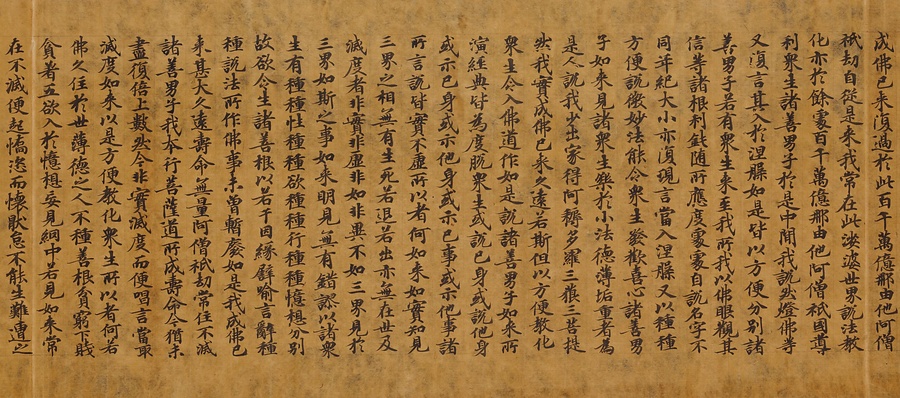 成佛已來復過於此百千萬億那由他阿僧
祇劫自從是來我常在此娑婆世界說法教
化亦於餘處百千萬億那由他阿僧祇國導
利衆生諸善男子於是中間我說燃燈佛等
又復言其入於涅槃如是皆以方便分別諸
善男子若有衆生來至我所我以佛眼觀其
信等諸根利鈍隨所應度處處自說名字不
同年紀大小亦復現言當入涅槃又以種種
方便說微妙法能令衆生發歡喜心諸善男
子如來見諸衆生樂於小法德薄垢重者為
是人說我少出家得阿耨多羅三藐三菩提
然我實成佛已來久遠若斯但以方便教化
衆生令入佛道作如是說諸善男子如來所
演經典皆為度脫衆生或說己身或說他身
或示己身或示他身或示己事或示他事諸
所言說皆實不虛所以者何如來如實知見
三界之相無有生死若退若出亦無在世及
滅度者非實非虛非如非異不如三界見於
三界如斯之事如來明見無有錯謬以諸衆
生有種種性種種欲種種行種種憶想分別
故欲令生諸善根以若干因緣譬喻言辭種
種說法所作佛事未曾暫廢如是我成佛已
來甚大久遠壽命無量阿僧祇劫常住不滅
諸善男子我本行菩薩道所成壽命今猶未
盡復倍上數然今非實滅度而便唱言當取
滅度如來以是方便教化衆生所以者何若
佛久住於世薄德之人不種善根貧窮下賤
貪著五欲入於憶想妄見網中若見如來常
在不滅便起憍恣而懷厭怠不能生難遭之